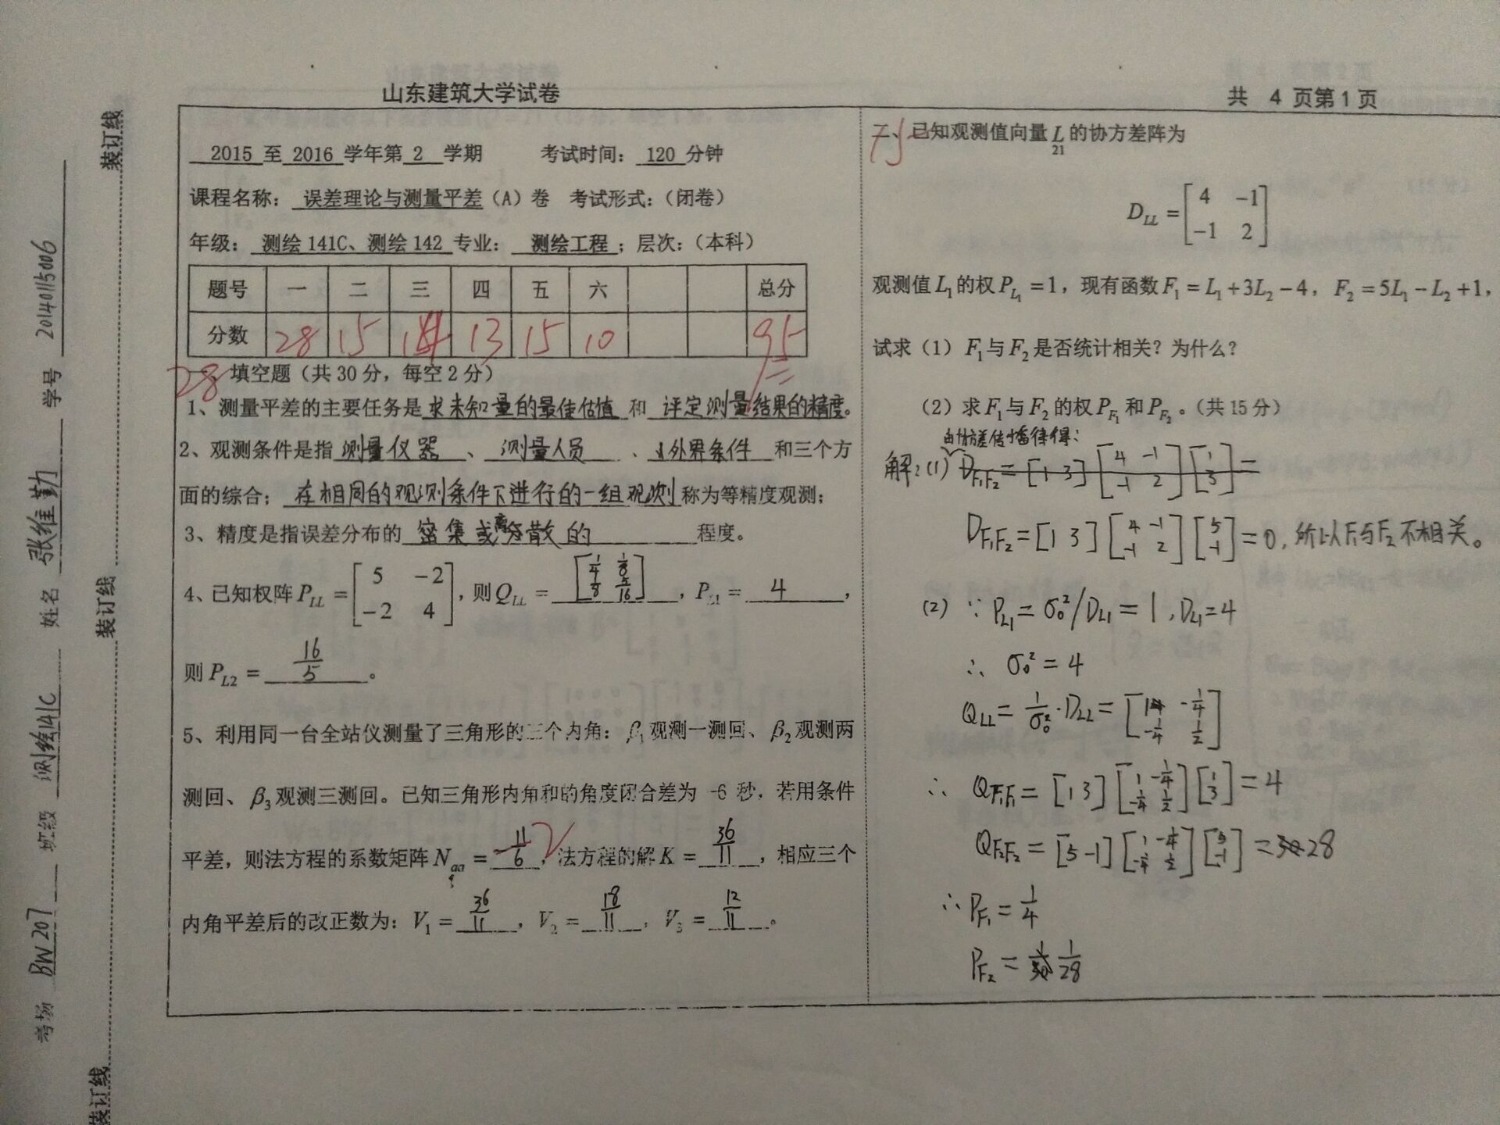 山东建筑大学试卷
共 4 页第 1 页
装订线
装订线
装订线
考场 BW207 班级 测绘141C 姓名 张维勤 学号 20140115006
2015 至 2016 学年第 2 学期 考试时间: 120 分钟
课程名称: 误差理论与测量平差 (A) 卷 考试形式: (闭卷)
年级: 测绘 141C、测绘 142 专业: 测绘工程 ; 层次: (本科)
题号 一 二 三 四 五 六 总分
分数 28 15 14 13 15 10 95
28 填空题 (共 30 分, 每空 2 分)
1、测量平差的主要任务是 求未知量的最佳估值 和 评定测量结果的精度。
2、观测条件是指 测量仪器 、 测量人员 、 外界条件 和三个方
面的综合; 在相同的观测条件下进行的一组观测 称为等精度观测;
3、精度是指误差分布的 密集或离散的 程度。
4、已知权阵 P_LL = [5 −2; −2 4], 则 Q_LL = [1/4 1/8; 1/8 5/16], P_L1 = 4 ,
则 P_L2 = 16/5 。
5、利用同一台全站仪测量了三角形的三个内角: β₁ 观测一测回、β₂ 观测两
测回、β₃ 观测三测回。已知三角形内角和的角度闭合差为 -6 秒, 若用条件
平差, 则法方程的系数矩阵 N_aa = 11/6 , 法方程的解 K = 36/11 , 相应三个
内角平差后的改正数为: V₁ = 36/11 , V₂ = 18/11 , V₃ = 12/11 。
15 二、已知观测值向量 L 的协方差阵为
21
D_LL = [4 −1; −1 2]
观测值 L₁ 的权 P_L₁ = 1, 现有函数 F₁ = L₁ + 3L₂ − 4, F₂ = 5L₁ − L₂ + 1,
试求 (1) F₁ 与 F₂ 是否统计相关? 为什么?
(2) 求 F₁ 与 F₂ 的权 P_F₁ 和 P_F₂ 。(共 15 分)
由协方差传播律得:
解:(1) D_F₁F₂ = [1 3] [4 -1; -1 2] [1; 3] =
D_F₁F₂ = [1 3] [4 -1; -1 2] [5; -1] = 0, 所以F₁与F₂不相关。
(2) ∵ P_L₁ = σ₀²/D_L₁ = 1, D_L₁ = 4
∴ σ₀² = 4
Q_LL = 1/σ₀² · D_LL = [1 -1/4; -1/4 1/2]
∴ Q_F₁F₁ = [1 3] [1 -1/4; -1/4 1/2] [1; 3] = 4
Q_F₂F₂ = [5 -1] [1 -1/4; -1/4 1/2] [5; -1] = 28
∴ P_F₁ = 1/4
P_F₂ = 1/28